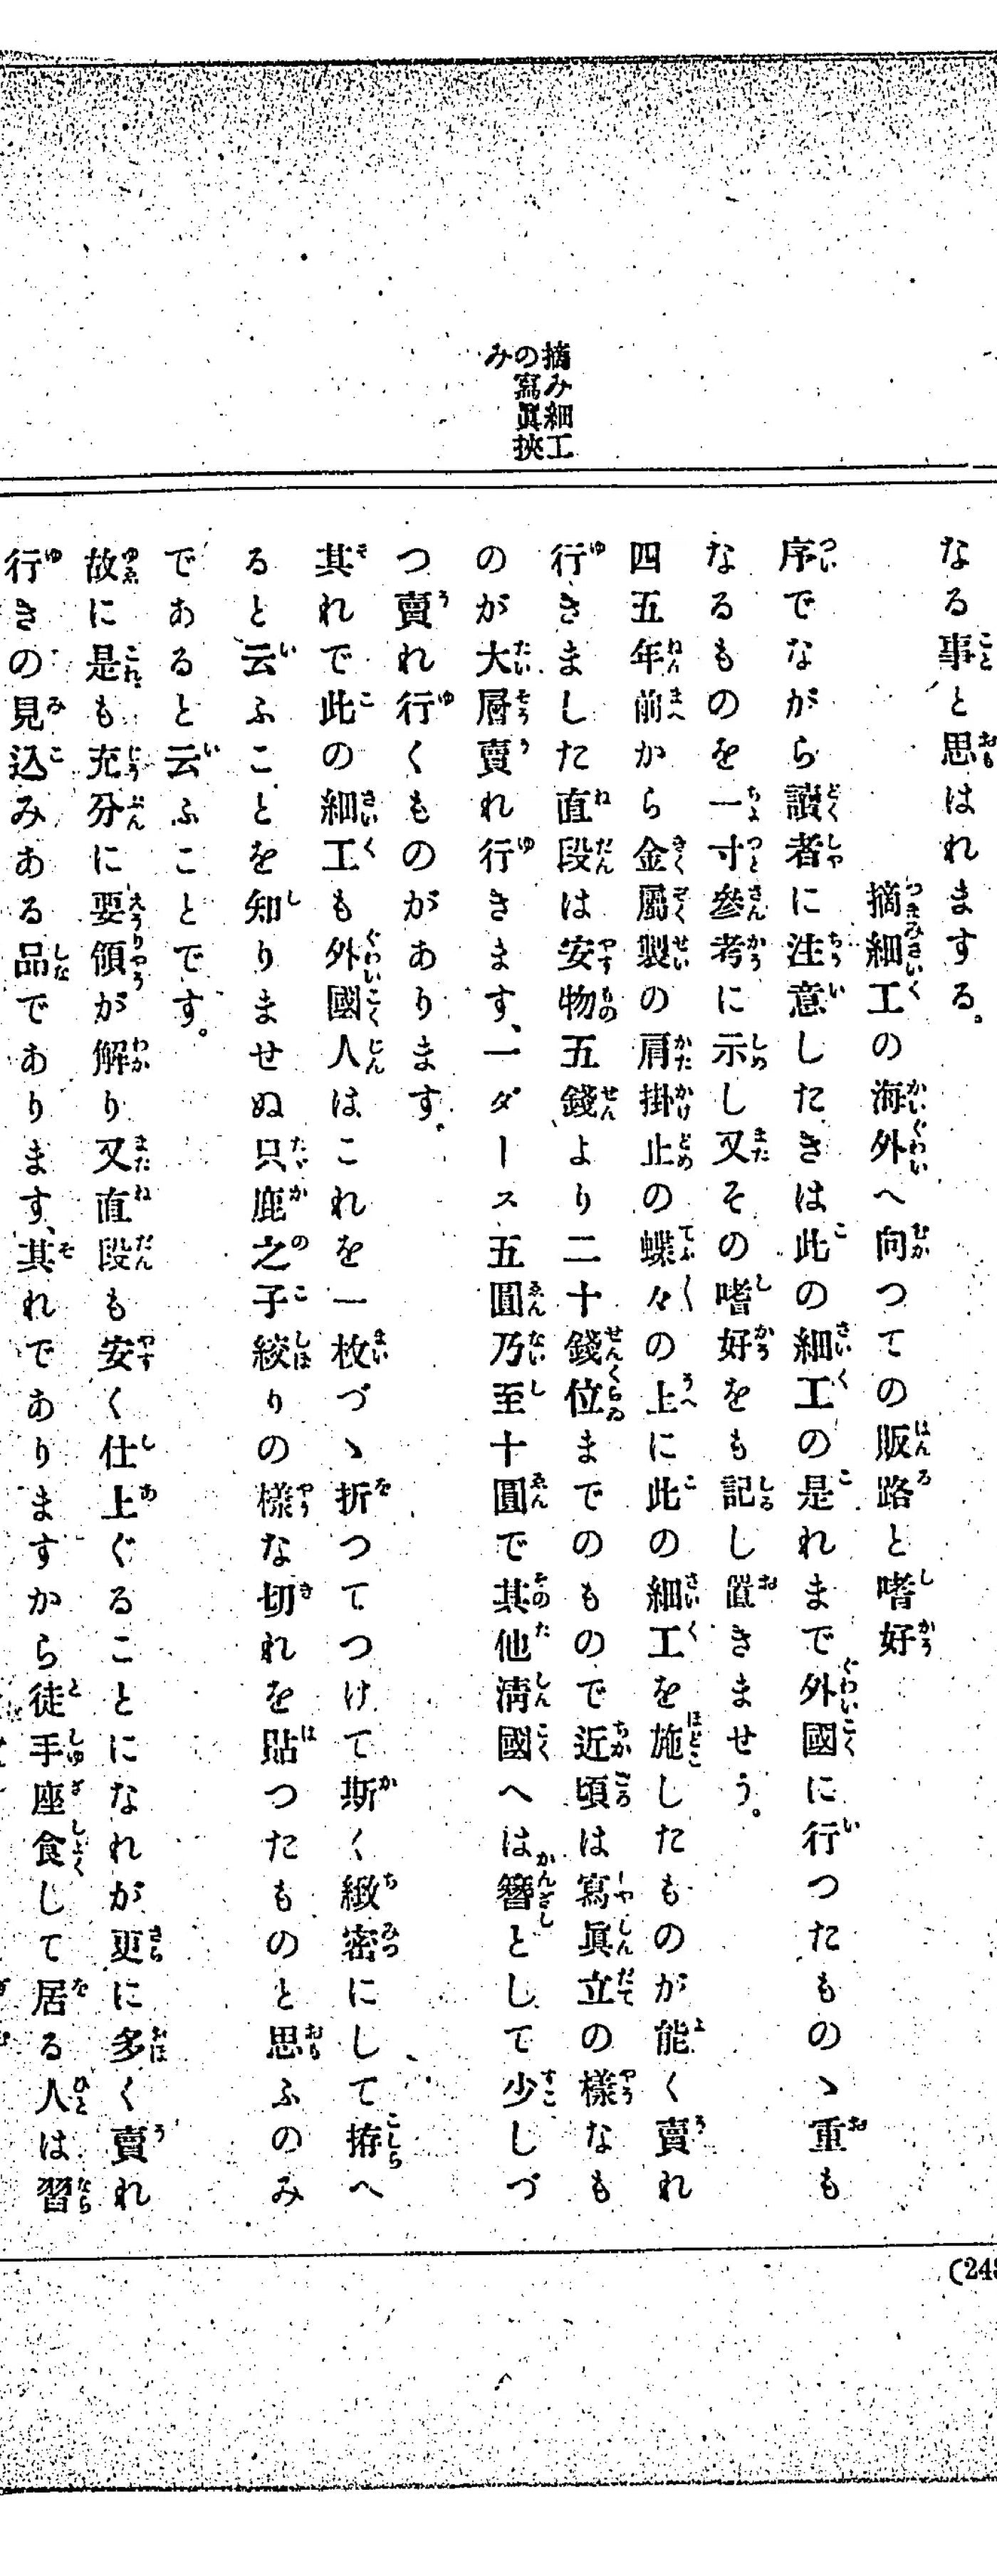 摘み細工
の寫眞挾
み
なる事と思はれまする。
摘細工の海外へ向つての販路と嗜好
序でながら讀者に注意したきは此の細工の是れまで外國に行つたものゝ重も
なるものを一寸參考に示し又その嗜好をも記し置きませう。
四五年前から金屬製の肩掛止の蝶々の上に此の細工を施したものが能く賣れ
行きました直段は安物五錢より二十錢位までのもので近頃は寫眞立の樣なも
のが大層賣れ行きます、一ダース五圓乃至十圓で其他淸國へは簪として少しづ
つ賣れ行くものがあります。
其れで此の細工も外國人はこれを一枚づゝ折つてつけて斯く緻密にして拵へ
ると云ふことを知りませぬ只鹿之子絞りの樣な切れを貼つたものと思ふのみ
であると云ふことです。
故に是も充分に要領が解り又直段も安く仕上ぐることになれが更に多く賣れ
行きの見込みある品であります、其れでありますから徒手座食して居る人は習
(24